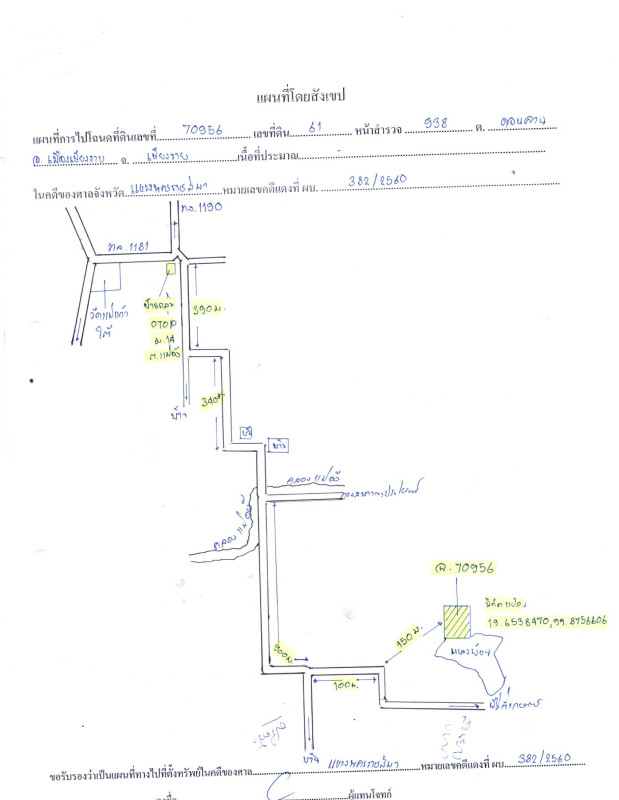 แผนที่โดยสังเขป
แผนที่การไปโฉนดที่ดินเลขที่ 70956 เลขที่ดิน 61 หน้าสำรวจ 938 ต. ดอนลาน
อ. เมืองเชียงราย จ. เชียงราย เนื้อที่ประมาณ -
ในคดีของศาลจังหวัด แขวงนครราชสีมา หมายเลขคดีแดงที่ ผบ. 382/2560
ทล.1190
ทล.1181
วัดแม่แก้ว
ใต้
ม.14
390 ม.
340 ม.
บ้าน
คลองแม่
ทางสาธารณประโยชน์
คลองแม่
ฉ.70956
พิกัดแปลง
19.6538470,99.8756606
150 ม.
หนองน้อย
900ม.
100ม.
บ้าน
ขอรับรองว่าเป็นแผนที่ทางไปที่ตั้งทรัพย์ในคดีของศาล แขวงนครราชสีมา หมายเลขคดีแดงที่ ผบ. 382/2560
ลงชื่อ ผู้แทนโจทก์